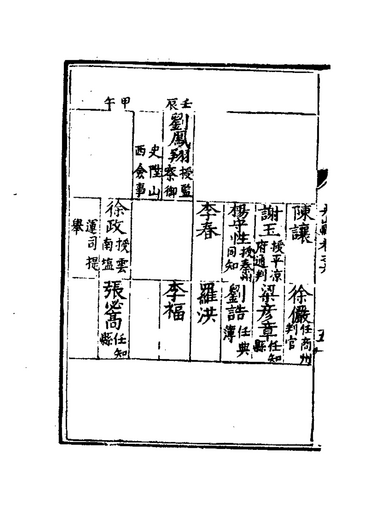 陳讓
徐儼任商州判官
謝玉授平凉府通判
梁彦章任知縣
楊守性授秦州同知
劉誥任典簿
李春
羅洪
壬辰
劉鳳翔授監察御史陞山西僉事
李福
甲午
徐政授雲南塩運司提舉
張必高任知縣